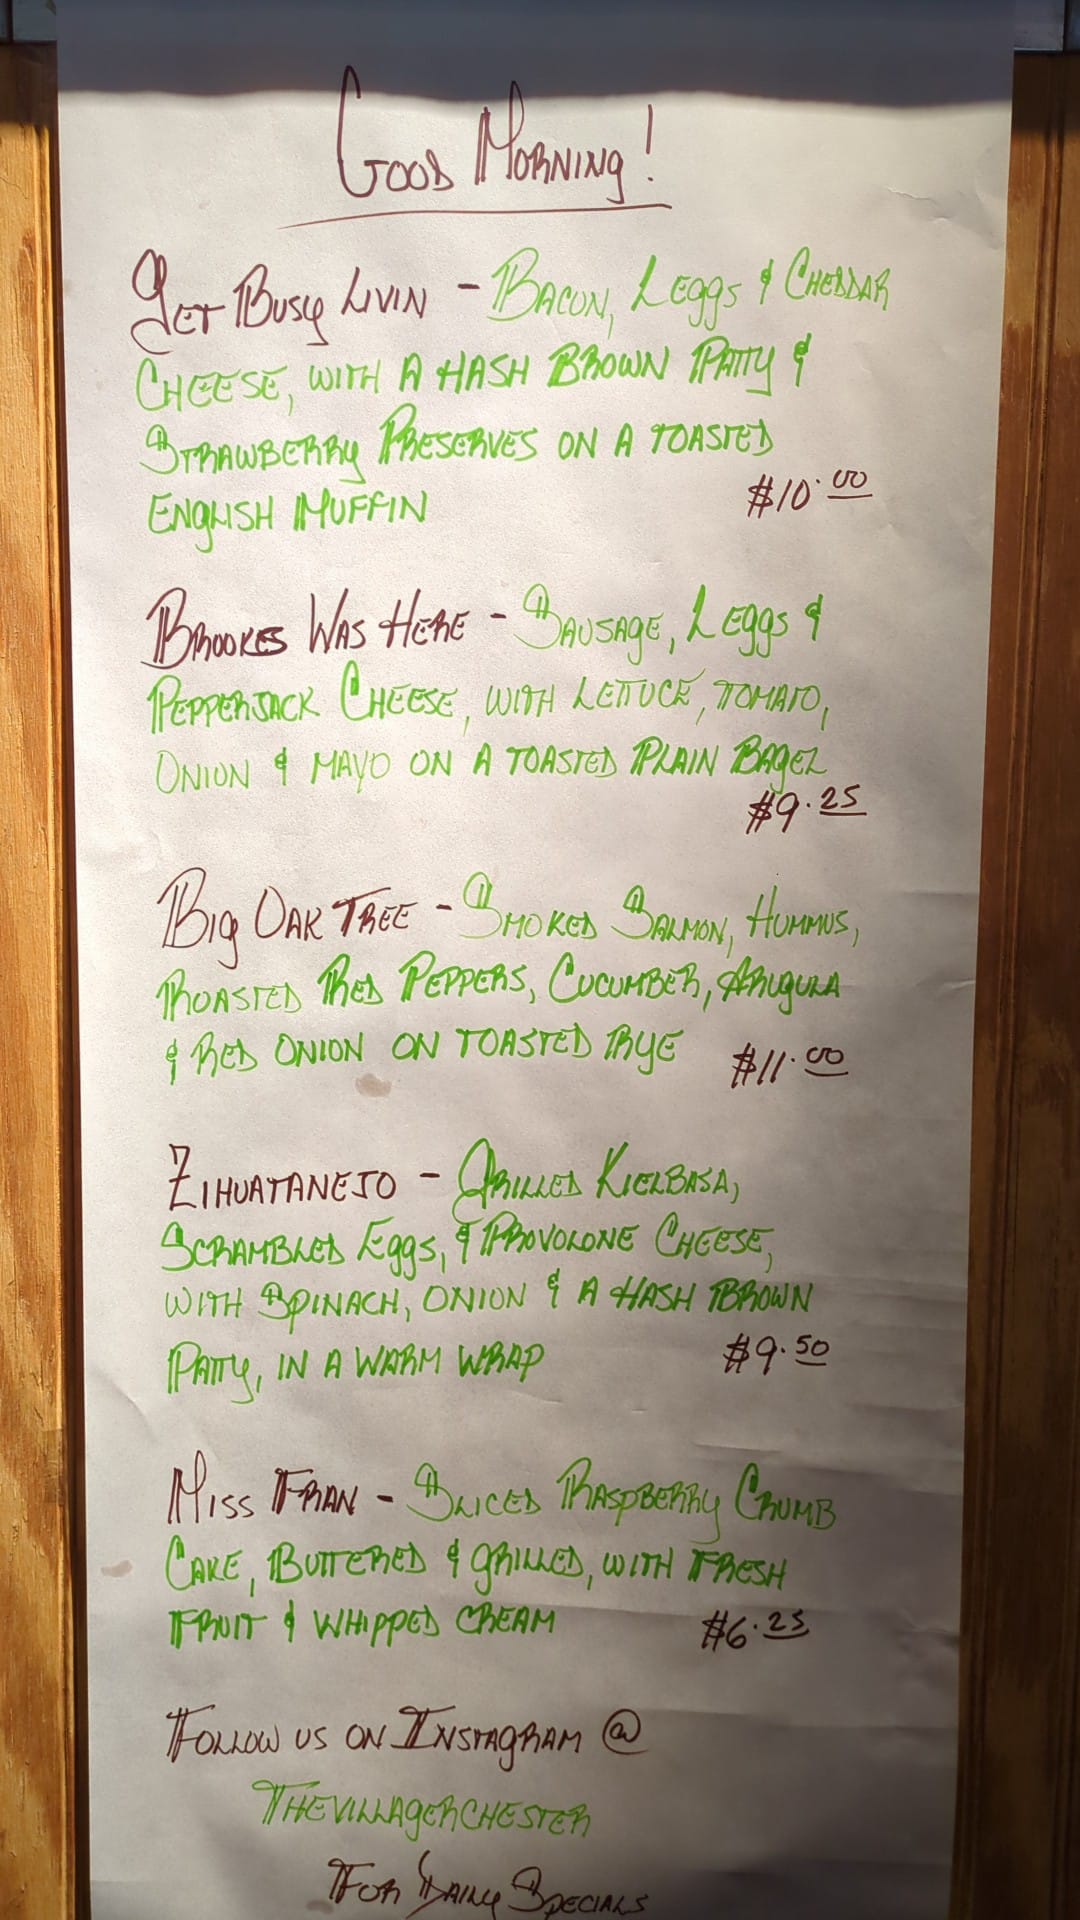 Good Morning!
Get Busy Livin - Bacon, 2 eggs & Cheddar
Cheese, with a hash Brown Patty &
Strawberry Preserves on a toasted
English Muffin $10.00
Brookes Was Here - Sausage, 2 eggs &
Pepperjack Cheese, with lettuce, tomato,
Onion & mayo on a toasted Plain Bagel
$9.25
Big Oak Tree - Smoked Salmon, Hummus,
Roasted Red Peppers, Cucumber, Arugula
& Red Onion on toasted Rye $11.00
Zihuatanejo - Grilled Kielbasa,
Scrambled Eggs, & Provolone Cheese,
with Spinach, onion & a hash Brown
Patty, in a warm wrap $9.50
Miss Fran - Sliced Raspberry Crumb
Cake, Buttered & grilled, with Fresh
Fruit & whipped cream $6.25
Follow us on Instagram @
Thevillagerchester
For Daily Specials